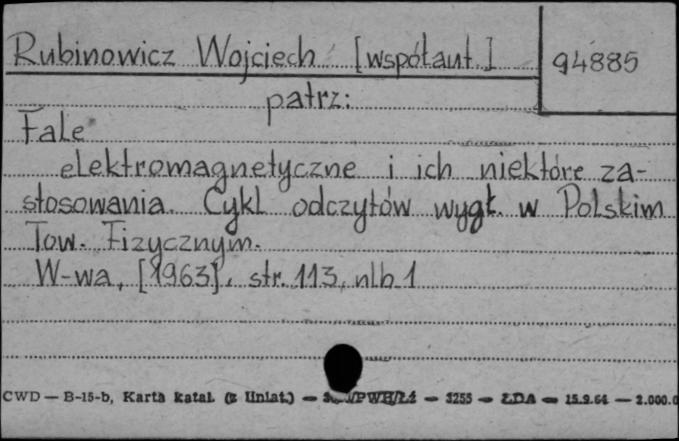 Rubinowicz Wojciech [współaut.] 94885
patrz:
Fale
elektromagnetyczne i ich niektóre za-
stosowania. Cykl odczytów wygł. w Polskim
Tow. Fizycznym.
W-wa, [1963], str. 113, nlb 1
CWD — B-15-b, Karta katal. (z liniat.) — — 3255 — ŁDA — 15.9.64 — 2.000.0